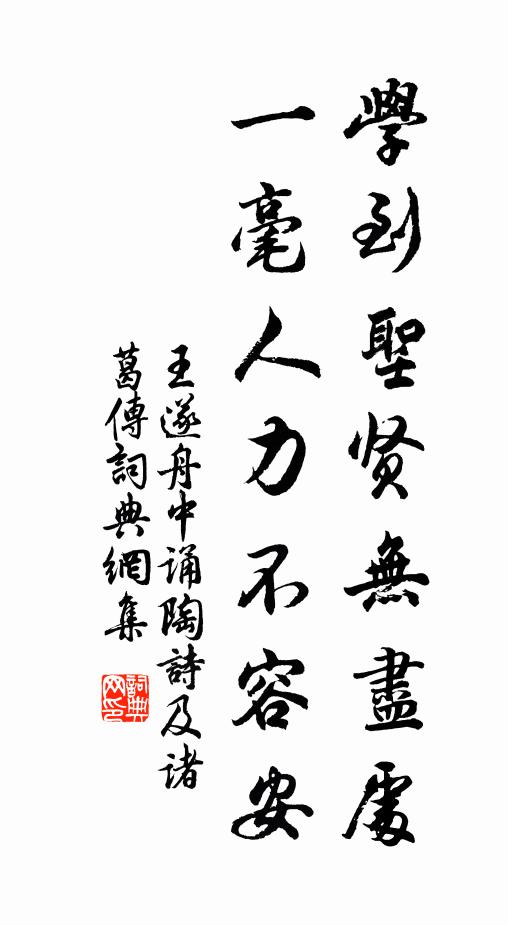 學到聖贤無盡處
一毫人力不容安
王遂舟中诵陶詩及诸
葛傳詞典網集
詞典
网印